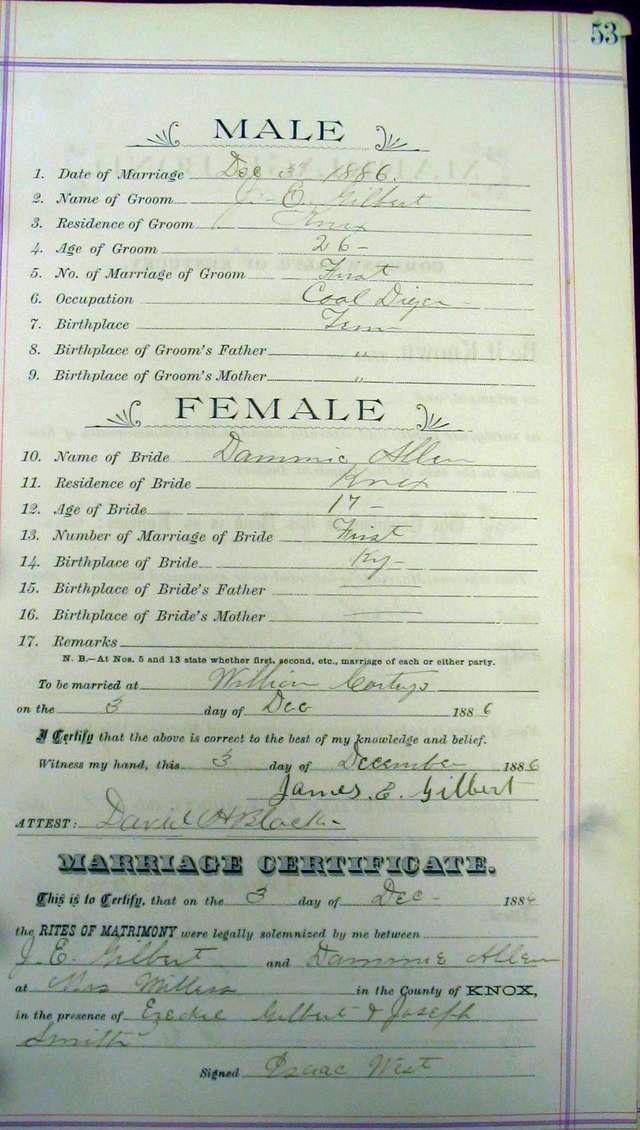 53
MALE
1. Date of Marriage Dec 3rd 1886.
2. Name of Groom J. E. Gilbert
3. Residence of Groom Knox
4. Age of Groom 26 -
5. No. of Marriage of Groom First
6. Occupation Coal Diger
7. Birthplace Tenn
8. Birthplace of Groom's Father "
9. Birthplace of Groom's Mother "
FEMALE
10. Name of Bride Dammie Allen
11. Residence of Bride Knox
12. Age of Bride 17 -
13. Number of Marriage of Bride First
14. Birthplace of Bride Ky -
15. Birthplace of Bride's Father
16. Birthplace of Bride's Mother
17. Remarks
N. B.—At Nos. 5 and 13 state whether first, second, etc., marriage of each or either party.
To be married at William
on the 3 day of Dec 1886
I Certify that the above is correct to the best of my knowledge and belief.
Witness my hand, this 3 day of December 1886
James. E. Gilbert
ATTEST: David H Black -
MARRIAGE CERTIFICATE.
This is to Certify, that on the 3 day of Dec - 1886
the RITES OF MATRIMONY were legally solemnized by me between
J. E. Gilbert and Dammie Allen
at Mrs Millers in the County of KNOX,
in the presence of Gilbert & Joseph
Smith
Signed Isaac West